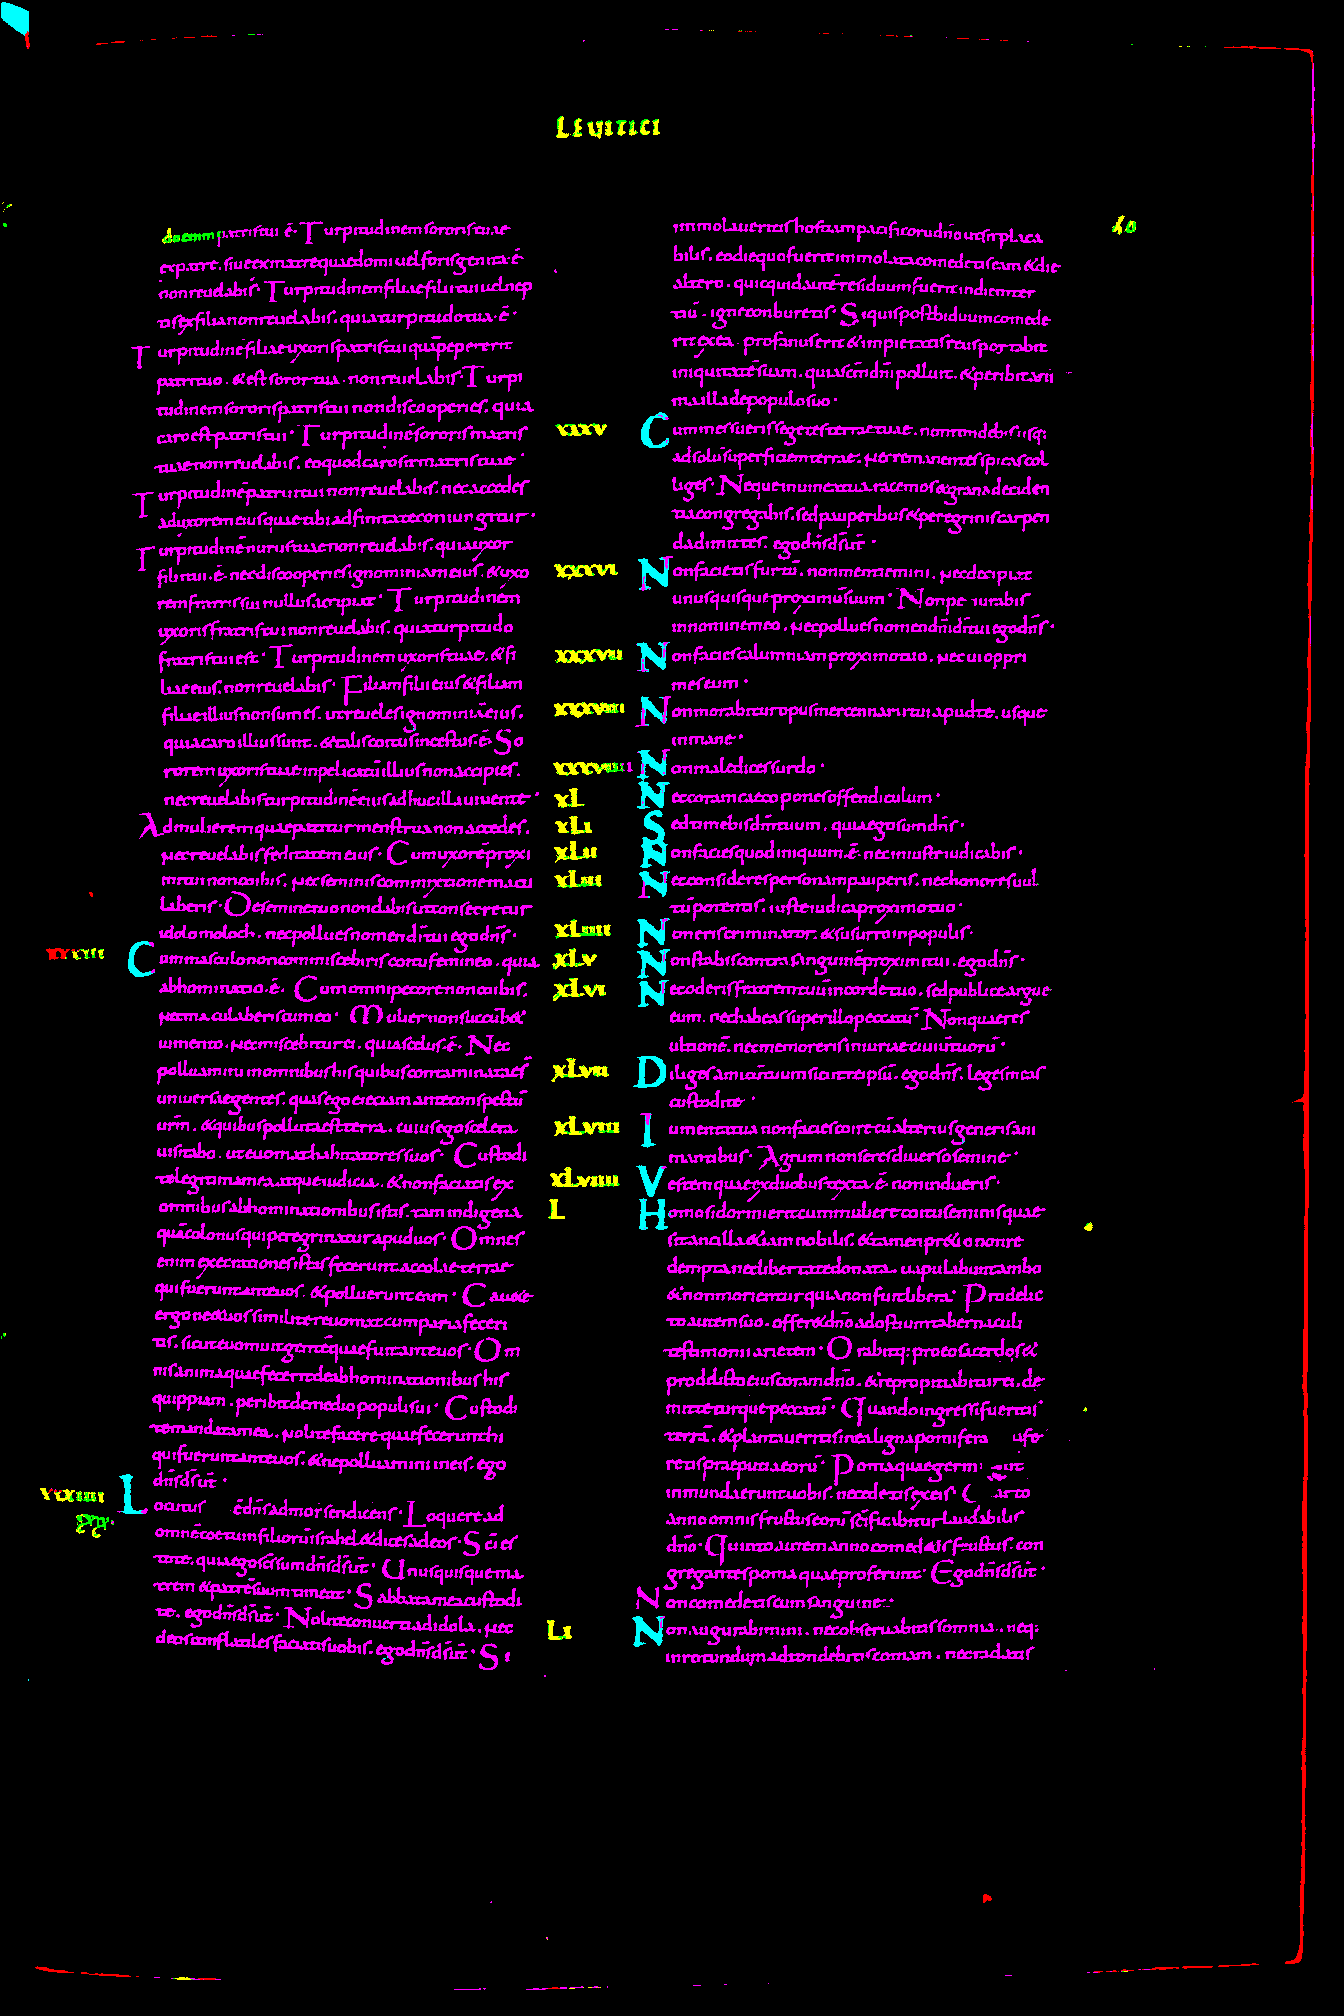 LEVITICI
40
do enim patris tui ē. Turpitudinem sororis tuae
ex patre. siue ex matre quae domi uel foris genita ē
non reuelabis. Turpitudinem filiae filii tui uel nep
tis ex filia non reuelabis. quia turpitudo tua ē.
Turpitudinē filiae uxoris patris tui quā peperit
patri tuo. & est soror tua. non reuelabis. Turpi
tudinem sororis patris tui non discooperies. quia
caro est patris tui. Turpitudinē sororis matris
tuae non reuelabis. eo quod caro sit matris tuae
Turpitudinē patrui tui non reuelabis. nec accedes
ad uxorem eius quae tibi adfinitate coniungitur.
Turpitudinē nurus tuae non reuelabis. quia uxor
filii tui ē. nec discooperies ignominiam eius. & uxo
rem fratris sui nullus accipiat. Turpitudinem
uxoris fratris tui non reuelabis. quia turpitudo
fratris tui est. Turpitudinem uxoris tuae. & fi
liae eius. non reuelabis. Filiam filii eius & filiam
filiae illius non sumes. ut reueles ignominiā eius.
quia caro illius sunt. & talis coitus incestus ē. So
rorem uxoris tuae in pelicatū illius non accipies.
nec reuelabis turpitudinē eius adhuc illa uiuente.
Ad mulierem quae patitur menstrua non accedes.
nec reuelabis feditatem eius. Cum uxore proxi
mi tui non coibis. nec seminis commixtione macu
laberis. De semine tuo non dabis ut consecretur
idolo moloch. nec pollues nomen dī tui ego dns.
xxxiii Cum masculo non commisceberis coitu femineo. quia
abhominatio ē. Cum omni pecore non coibis.
nec macula beris cum eo. Mulier non succūbet
iumento. nec miscebitur ei. quia scelus ē. Nec
polluamini in omnibus his quibus contaminatae s̄
uniuersae gentes. quas ego eiciam ante conspectū
urm̄. & quibus polluta est terra. cuius ego scelera
uisitabo. ut euomat habitatores suos. Custodi
te legitima mea atque iudicia. & non faciatis ex
omnibus abhominationibus istis. tam indigena
quā colonus qui peregrinatur apud uos. Omnes
enim execrationes istas fecerunt accolae terrae
qui fuerunt ante uos. & polluerunt eam. Cauete
ergo ne & uos similiter euomat cum paria feceri
tis. sicut euomuit gentē quae fuit ante uos. Om
nis anima quae fecerit de abhominationibus his
quippiam. peribit de medio populi sui. Custodi
te mandata mea. nolite facere quae fecerunt hi
qui fuerunt ante uos. & ne polluamini in eis. ego
dns ds ur̄.
xxxiiii Locutus ē dns ad moysen dicens. Loquere ad
omnē coetum filiorū israhel & dices ad eos. Sc̄i es
tote. quia ego sc̄s sum dns ds ur̄. Unusquisque ma
trem & patrē suum timeat. Sabbata mea custodi
te. ego dns ds ur̄. Nolite conuerti ad idola. nec
deos conflatiles faciatis uobis. ego dns ds ur̄. Si
immolaueritis hostiam pacificorū dn̄o ut sit placa
bilis. eo die quo fuerit immolata comedetis eam & die
altero. quicquid autē residuum fuerit in diem ter
tiū. igne conburetis. Si quis post biduum comede
rit ex ea. profanus erit & impietatis reus portabit
iniquitatē suam. quia sc̄m dn̄i polluit. & peribit ani
ma illa de populo suo.
xxxv Cum messueris segetes terrae tuae. non tondebis usq;
ad solū superficiem terrae. nec remanentes spicas col
liges. Neque in uinea tua racemos & grana deciden
tia congregabis. sed pauperibus & peregrinis carpen
da dimittes. ego dns ds ur̄.
xxxvi Non facietis furtū. non mentiemini. nec decipiat
unusquisque proximū suum. Non peiurabis
in nomine meo. nec pollues nomen dī tui ego dns.
xxxvii Non facies calumniam proximo tuo. nec ui oppri
mes eum.
xxxviii Non morabitur opus mercennarii tui apud te. usque
in mane.
xxxviiii Non maledices surdo.
xL Nec coram caeco pones offendiculum.
xLi Sed timebis dn̄m tuum. quia ego sum dns.
xLii Non facies quod iniquum ē. nec iniuste iudicabis.
xLiii Nec consideres personam pauperis. nec honores uul
tū potentis. iuste iudica proximo tuo.
xLiiii Non eris criminator. & susurro in populis.
xLv Non stabis contra sanguinē proximi tui. ego dns.
xLvi Nec oderis fratrem tuum in corde tuo. sed publice argue
eum. nec habeas super illo peccatū. Non quaeres
ultionē. nec memor eris iniuriae ciuiū tuorū.
xLvii Diliges amicū tuum sicut te ipsū. ego dns. leges meas
custodite.
xLviii Iumenta tua non facies coire cū alterius generis ani
mantibus. Agrum non seres diuerso semine.
xLviiii Vestem quae ex duobus texta ē non indueris.
L Homo si dormierit cum muliere coitu seminis quae
sit ancilla etiam nobilis. & tamen pretio non re
dempta nec libertate donata. uapulabunt ambo
& non morientur quia non fuit libera. Pro delic
to autem suo. offeret dn̄o ad ostium tabernaculi
testimonii arietem. Orabitq; pro eo sacerdos &
pro delicto eius coram dn̄o. & repropitiabitur ei. de
mitteturque peccatū. Quando ingressi fueritis
terrā. & plantaueritis in ea ligna pomifera ufe
retis praeputia eorū. Poma quae germi ant
inmunda erunt uobis. nec edetis ex eis. arto
anno omnis fructus eorū sc̄ificabitur laudabilis
dn̄o. Quinto autem anno comedetis fructus. con
gregantes poma quae proferunt. Ego dns ds ur̄.
Non comedetis cum sanguine.
Li Non augurabimini. nec obseruabitis somnia. neq;
in rotundum adtondebitis comam. nec radatis